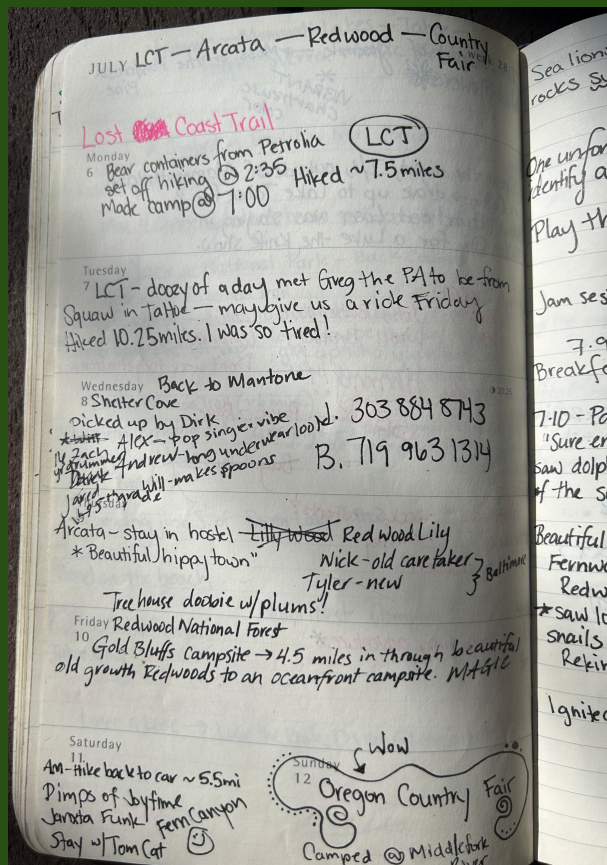 JULY LCT – Arcata – Redwood – Country Fair
week 28
Lost Coast Trail
LCT
Monday
6 Bear containers from Petrolia
set off hiking @ 2:35
Hiked ~7.5 miles
made camp @ 7:00
Tuesday
7 LCT - doozy of a day met Greg the PA to be from
Squaw in Tahoe — may give us a ride Friday
Hiked 10.25 miles. I was so tired!
Wednesday Back to Mantone
8 Shelter Cove
Picked up by Dirk
Alex - pop singer vibe
Zach
drummer
Andrew - long underwear look
Will - makes spoons
Jarid
5th grade
J. 303 884 8743
B. 719 963 1314
Arcata - stay in hostel Lilly Wood Redwood Lily
* Beautiful hippy town"
Nick - old caretaker
Tyler - new
Baltimore
Treehouse doobie w/ plums!
Friday Redwood National Forest
10 Gold Bluffs campsite → 4.5 miles in through beautiful
old growth Redwoods to an oceanfront campsite. MAGIC
Saturday
11
Am - Hike back to car ~ 5.5mi
Dimps of Joyfime
Janxta Funk
Fern Canyon
Stay w/ Tom Cat
Wow
Sunday
12 Oregon Country Fair
Camped @ Middlefork
Sea lions
rocks
One
identify a
Play th
Jam ses
7.9
Breakf
7.10 - Po
"Sure
saw dolp
of the s
Beautiful
Fernw
Redw
* saw
snails
Ignited